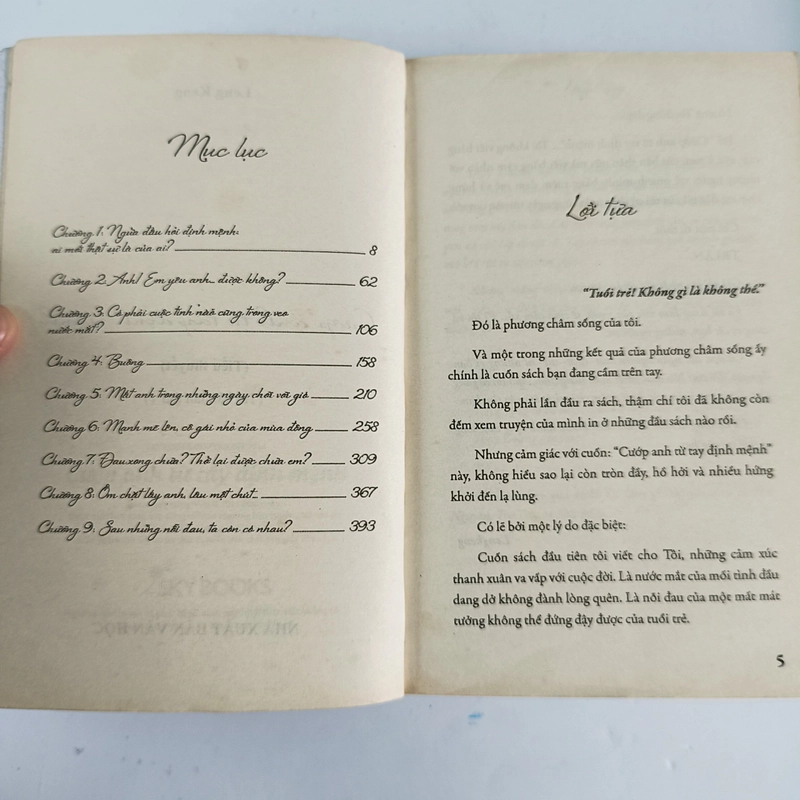 Mục lục
Chương 1: Ngửa đầu hỏi định mệnh:
ai mới thật sự là của ai? 8
Chương 2: Anh! Em yêu anh... được không? 62
Chương 3: Có phải cuộc tình nào cũng trong veo
nước mắt? 106
Chương 4: Buông 158
Chương 5: Mất anh trong những ngày chơi vơi gió 210
Chương 6: Mạnh mẽ lên, cô gái nhỏ của mùa đông 258
Chương 7: Đau xong chưa? Thở lại được chưa em? 309
Chương 8: Ôm chặt lấy anh, lâu một chút... 367
Chương 9: Sau những nỗi đau, ta còn có nhau? 393
SKYBOOKS
NHÀ XUẤT BẢN VĂN HỌC
Lời tựa
“Tuổi trẻ! Không gì là không thể.”
Đó là phương châm sống của tôi.
Và một trong những kết quả của phương châm sống ấy
chính là cuốn sách bạn đang cầm trên tay.
Không phải lần đầu ra sách, thậm chí tôi đã không còn
đếm xem truyện của mình in ở những đầu sách nào rồi.
Nhưng cảm giác với cuốn: “Cướp anh từ tay định mệnh”
này, không hiểu sao lại còn tròn đầy, hồ hởi và nhiều hứng
khởi đến lạ lùng.
Có lẽ bởi một lý do đặc biệt:
Cuốn sách đầu tiên tôi viết cho Tôi, những cảm xúc
thanh xuân va vấp với cuộc đời. Là nước mắt của mối tình đầu
dang dở không đành lòng quên. Là nỗi đau của một mất mát
tưởng không thể đứng dậy được của tuổi trẻ.
5